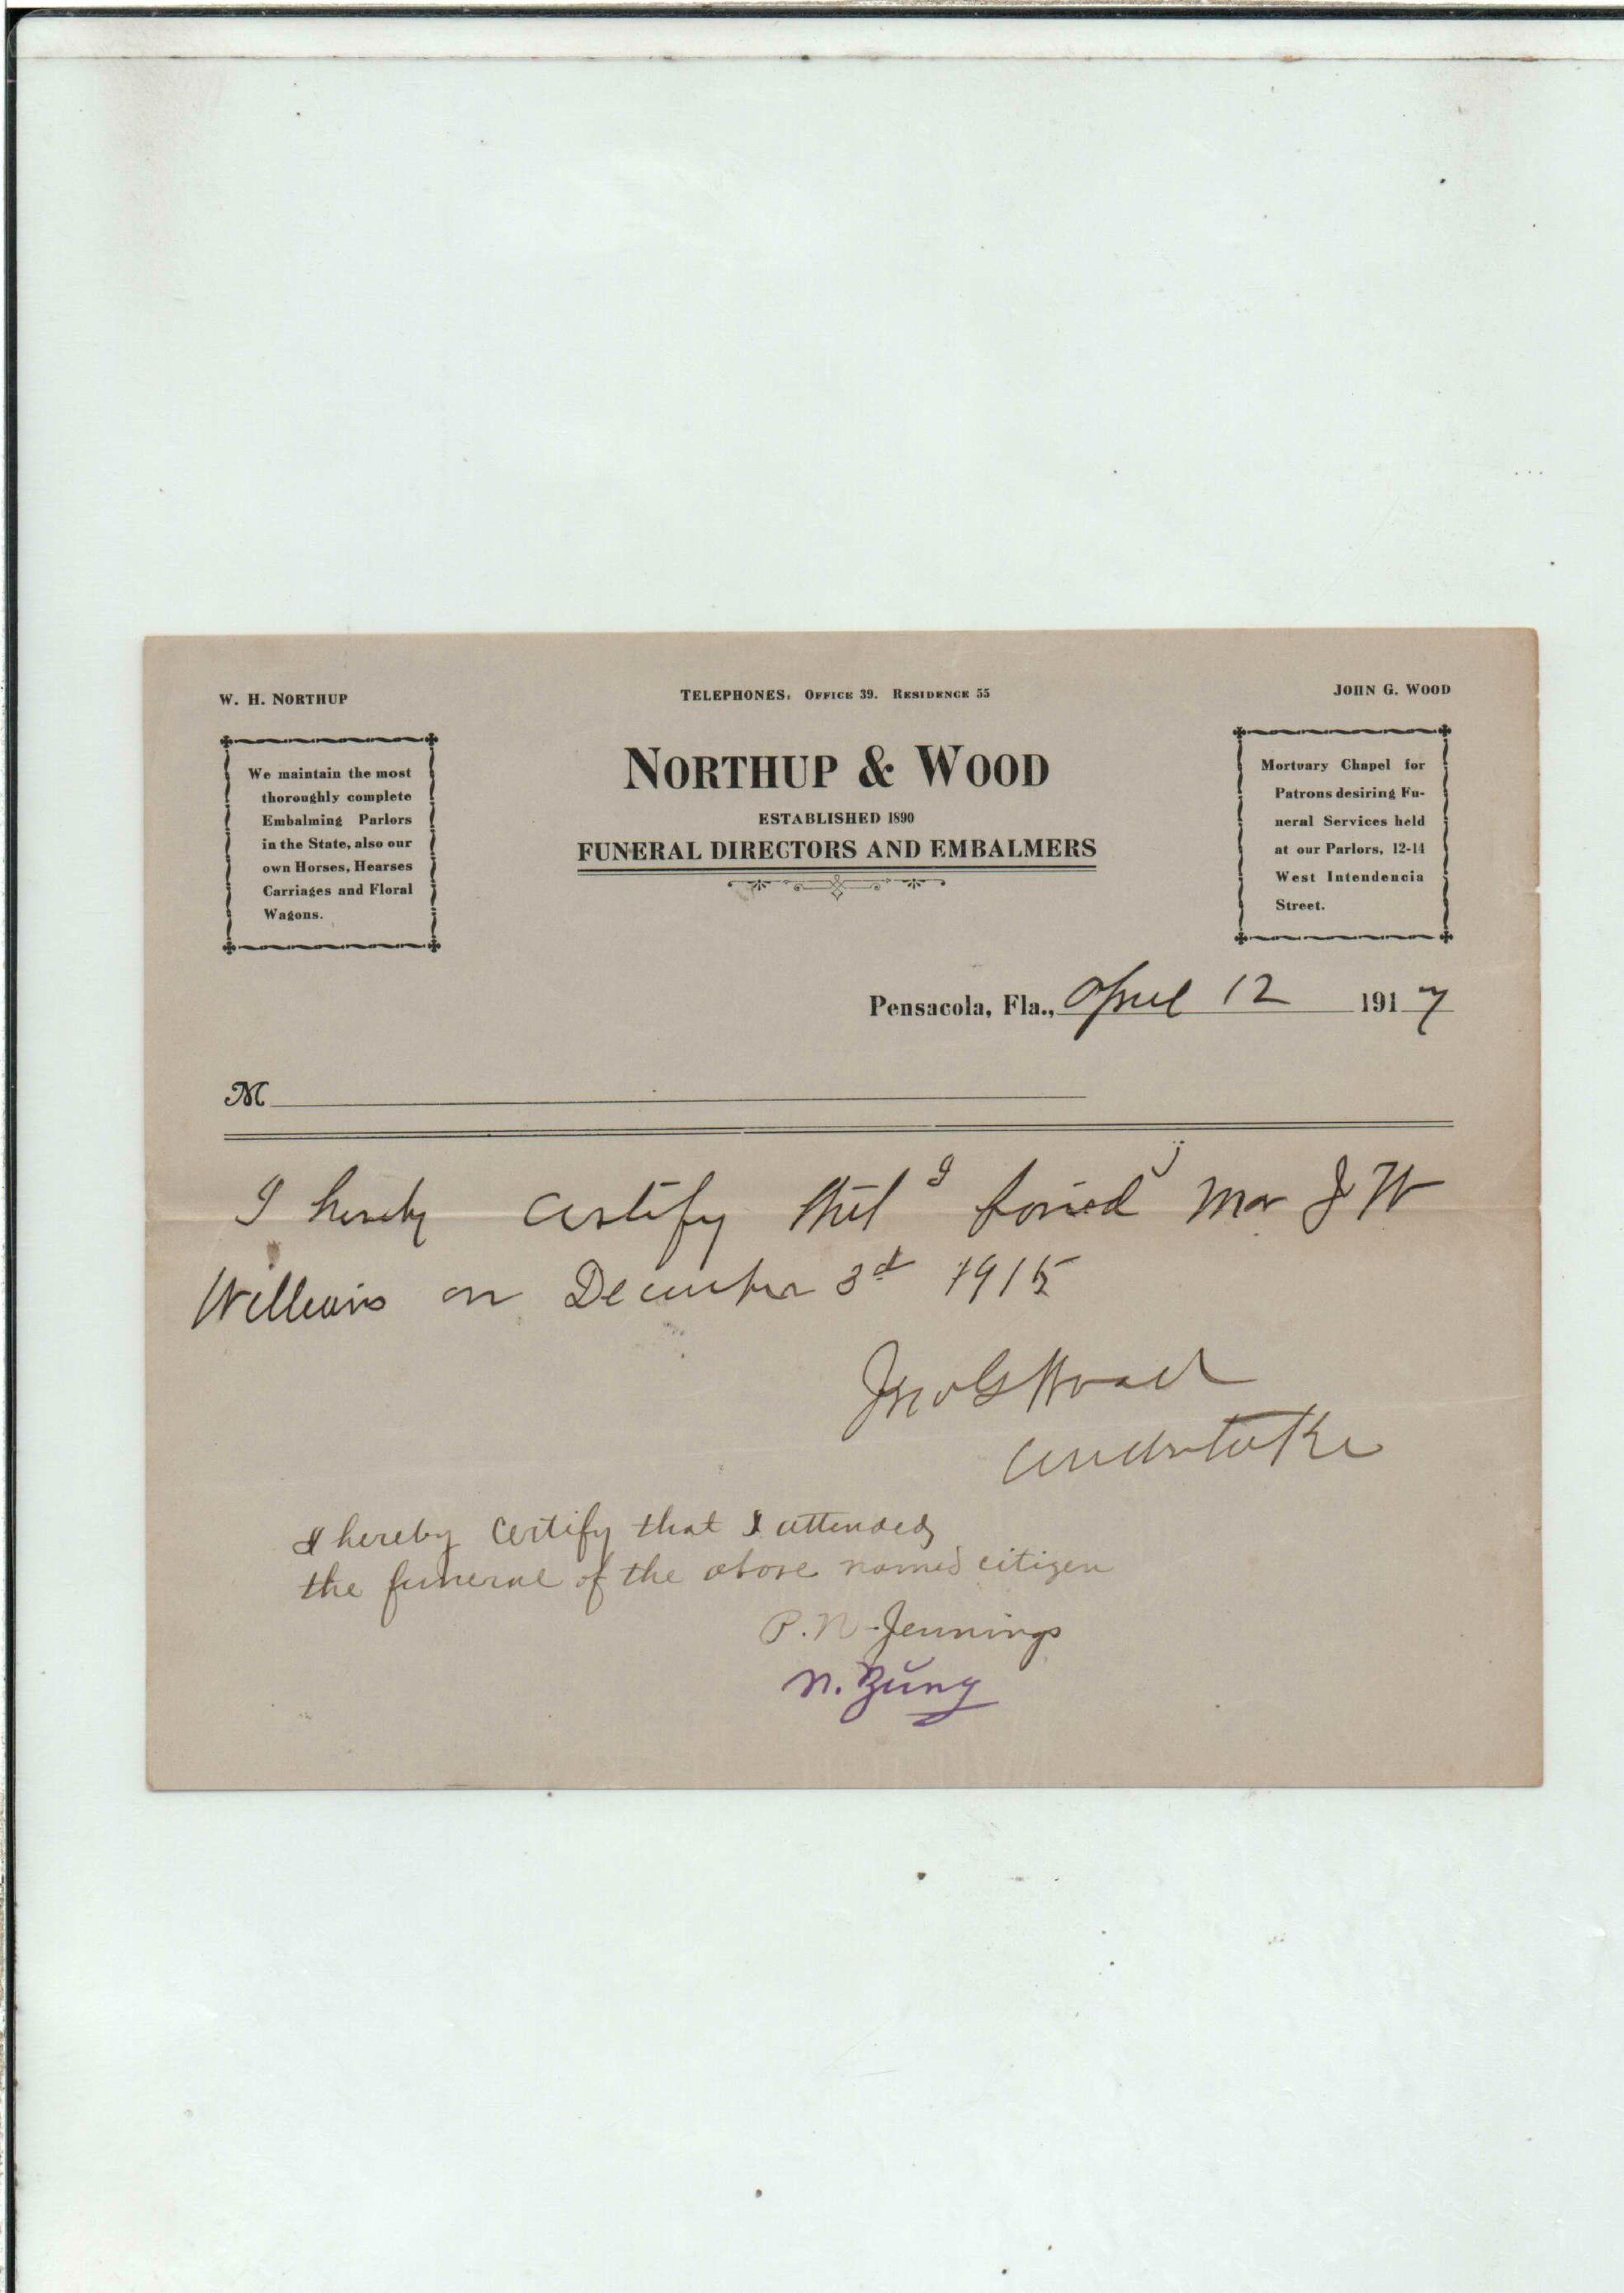 W. H. NORTHUP
TELEPHONES, OFFICE 39. RESIDENCE 55
JOHN G. WOOD
We maintain the most
thoroughly complete
Embalming Parlors
in the State, also our
own Horses, Hearses
Carriages and Floral
Wagons.
NORTHUP & WOOD
ESTABLISHED 1890
FUNERAL DIRECTORS AND EMBALMERS
Mortuary Chapel for
Patrons desiring Fu-
neral Services held
at our Parlors, 12-14
West Intendencia
Street.
Pensacola, Fla., April 12 1917
M
I hereby certify that I buried J W
Williams on December 3d 1915
Jno G Wood
undertaker
I hereby certify that I attended
the funeral of the above named citizen
P. N. Jennings